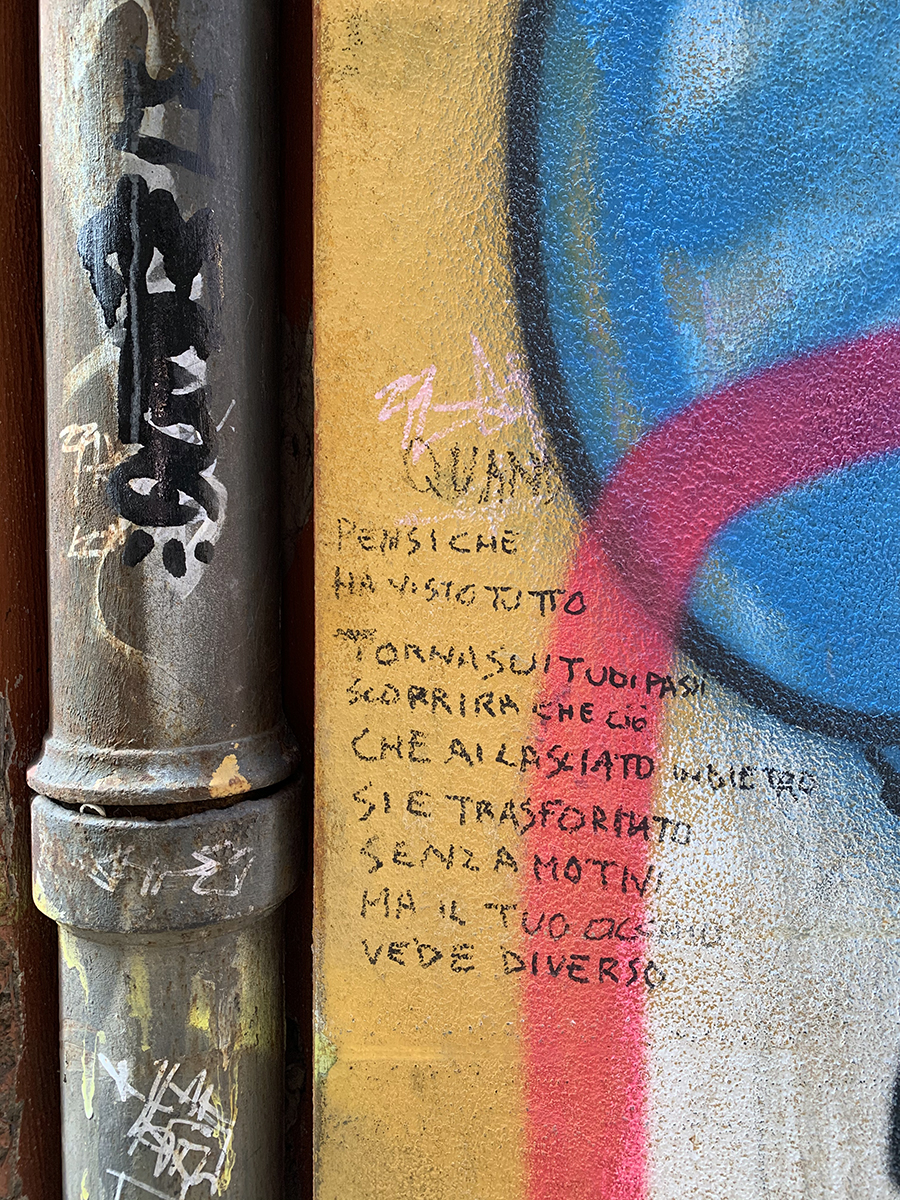 QUAN
PENSI CHE
HA VISTO TUTTO
TORNA SUI TUOI PASSI
SCORRIRA CHE CIÒ
CHE AI LASCIATO INDIETRO
SI E TRASFORMATO
SENZA MOTIVI
MA IL TUO
VEDE DIVERSO